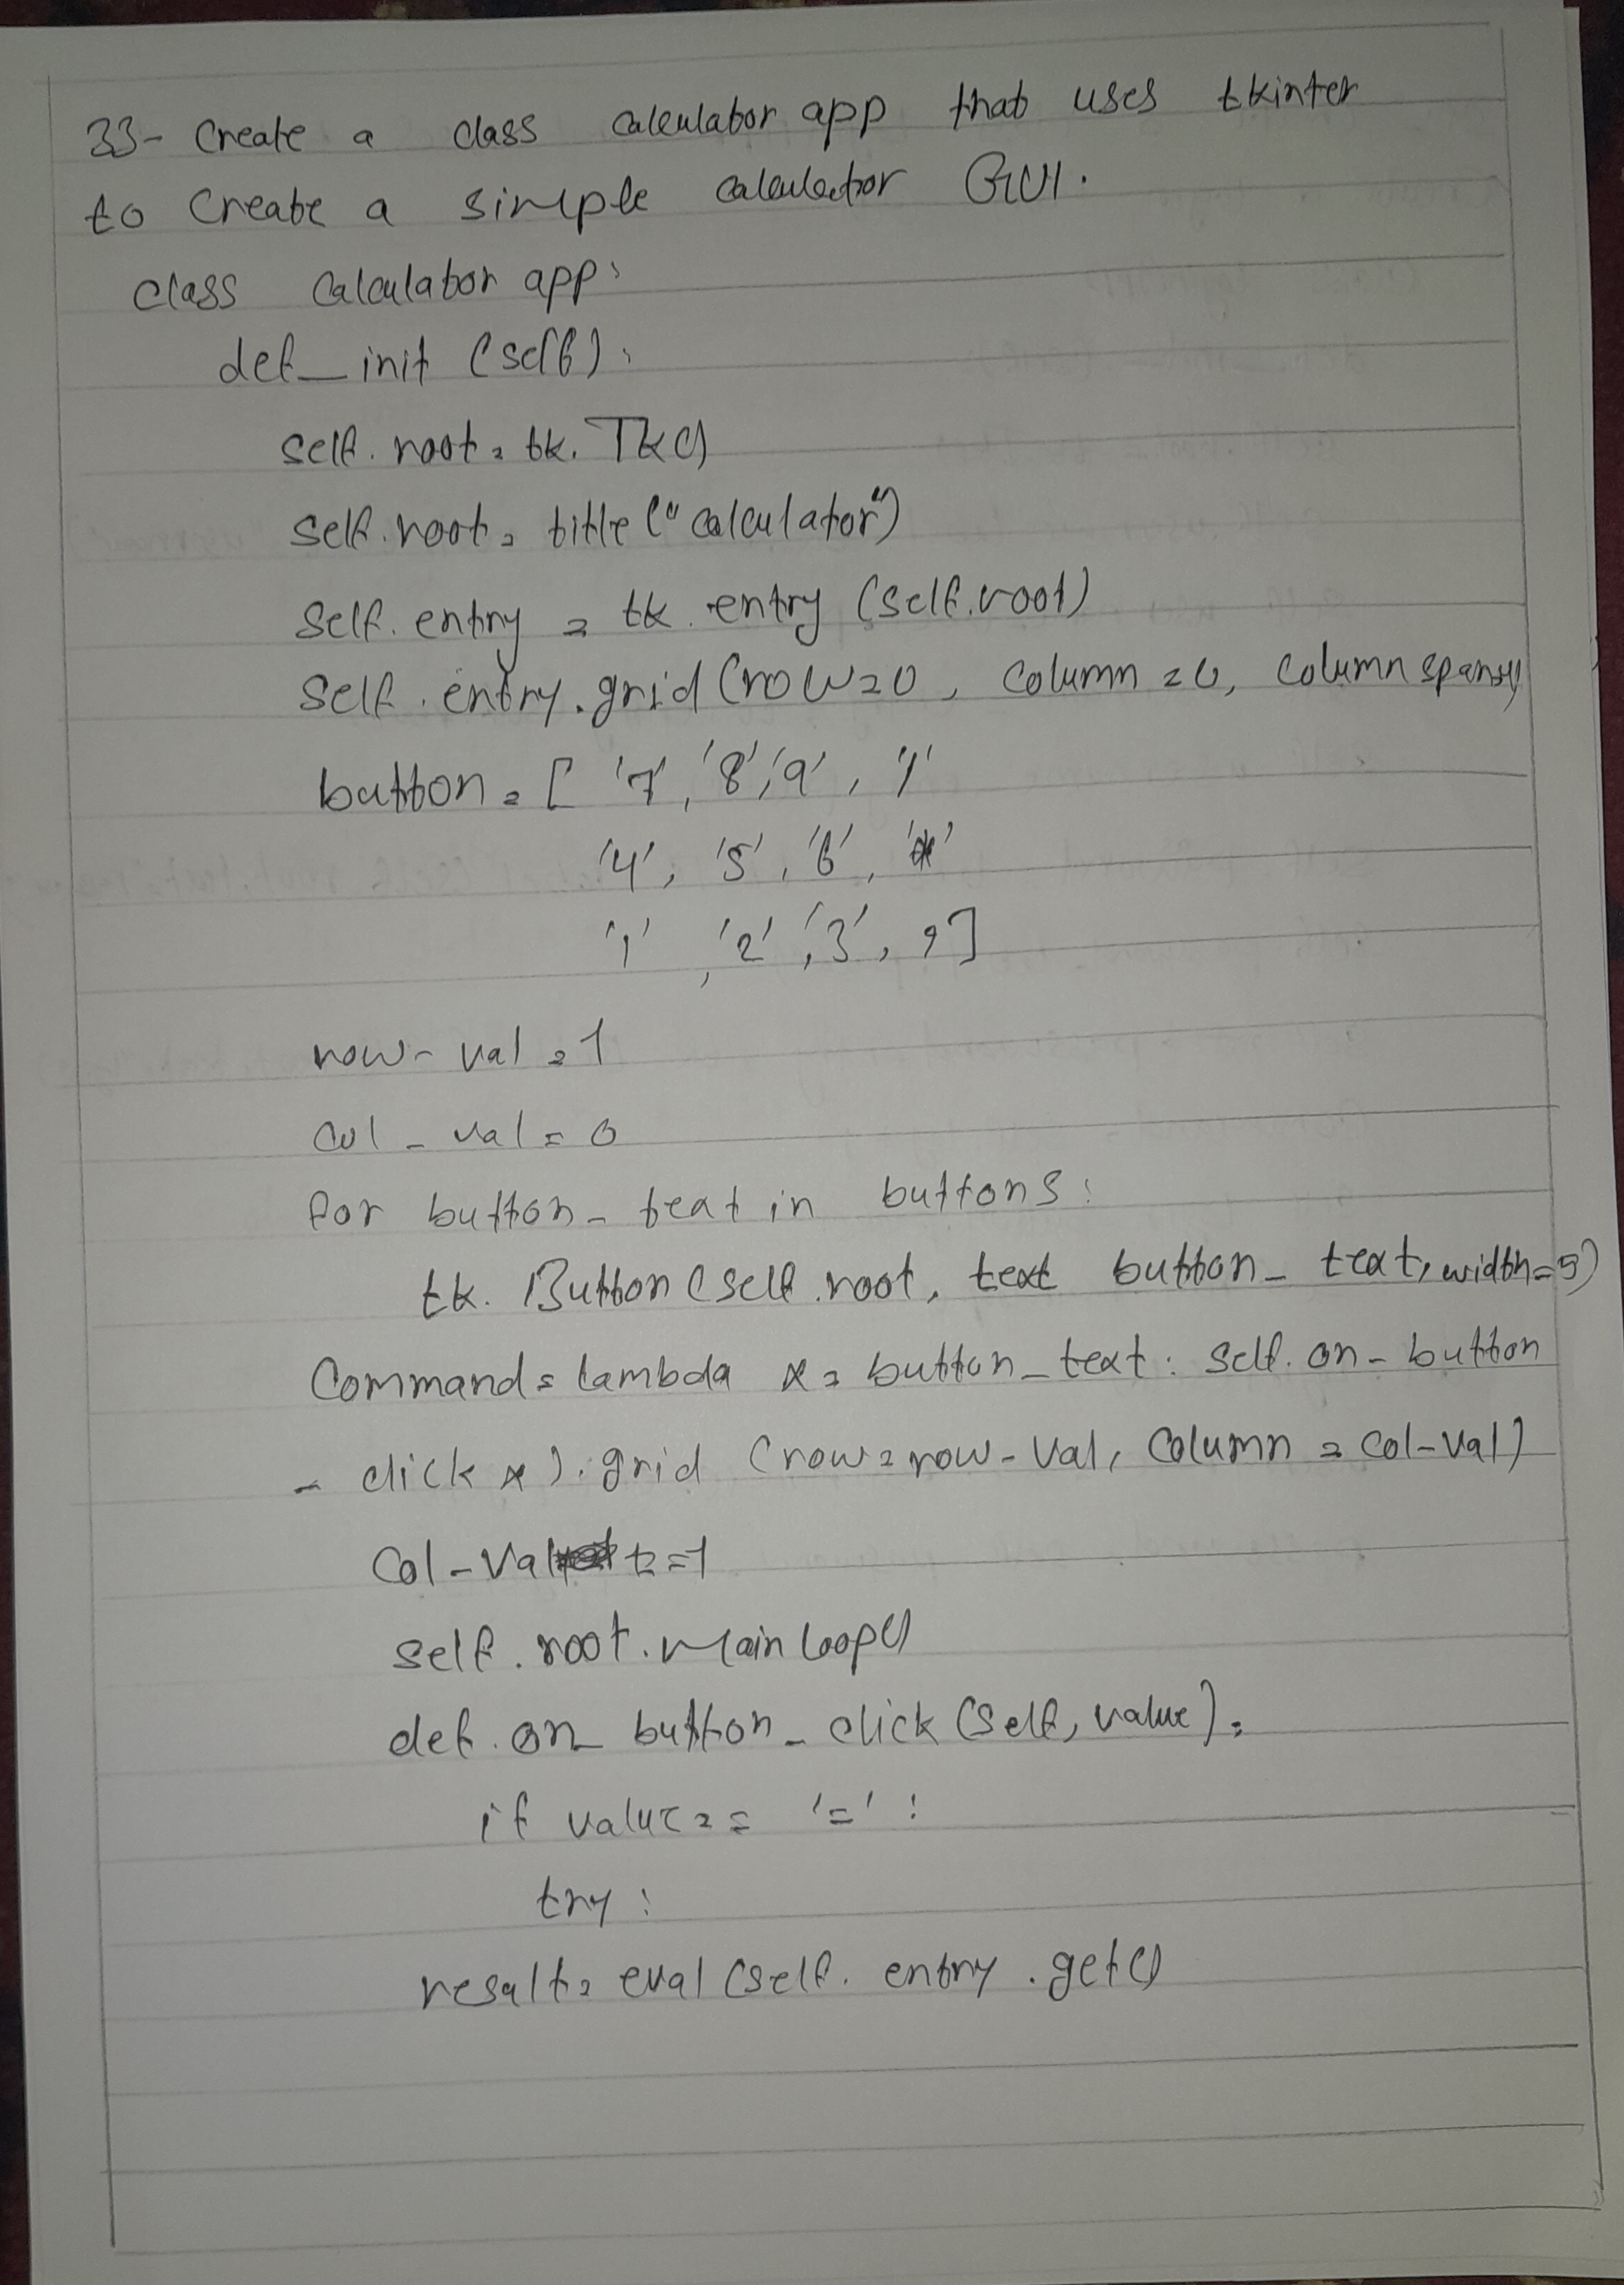 33- Create a class calculator app that uses tkinter
to Create a simple calculator GUI.
class Calculator app:
def_init (self):
self.root = tk.Tk()
self.root = title ("calculator")
self.entry = tk.entry (self.root)
self.entry.grid (row=0, column=0, column span=4)
button = [ '7', '8', '9', '/'
'4', '5', '6', '*'
'1', '2', '3', ]
row- val = 1
col - val = 0
for button_ teat in buttons:
tk. Button (self.root, text button_ text, width=5)
Command= lambda x = button_text: self.on- button
- click x ). grid (row=row- Val, Column = Col-Val)
Col-Val += 1
self.root.main loop()
def. on_ button_ click (self, value):
if value== '=' :
try :
result= eval (self. entry .get()